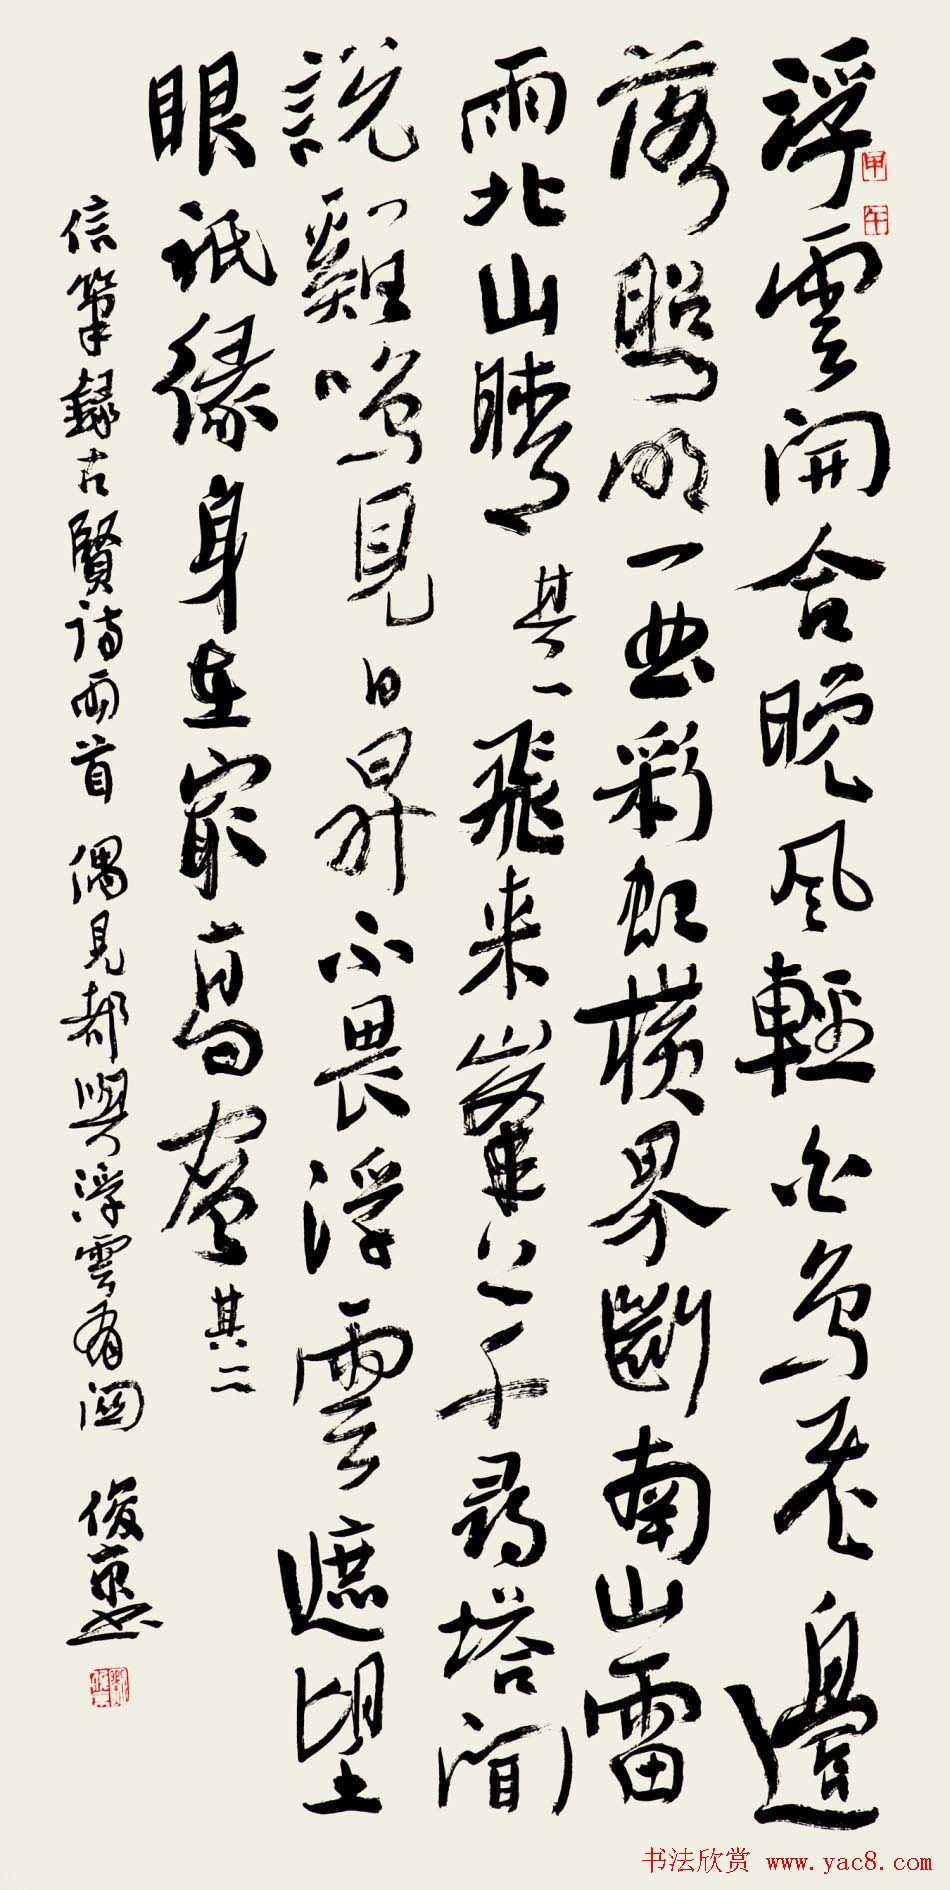 浮雲開合晚風輕白鳥飛邊
落照明一曲彩虹橫界斷南山雷
雨北山晴 其一 飛来峯上千尋塔聞
說雞鳴見日昇不畏浮雲遮望
眼祇緣身在最高層 其二
信筆錄古賢詩兩首 偶見都與浮雲有關 俊
甲午
书法欣赏 www.yac8.com